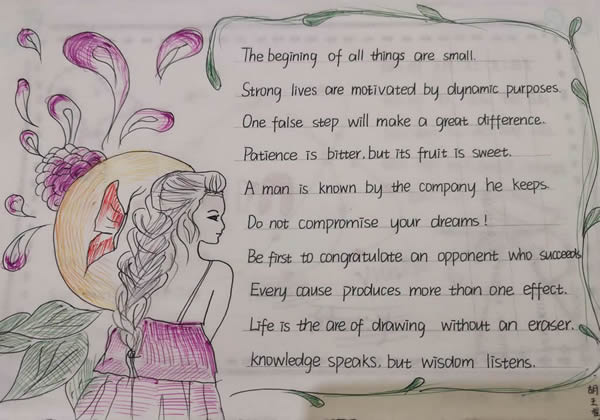 The begining of all things are small.
Strong lives are motivated by dynamic purposes.
One false step will make a great difference.
Patience is bitter, but its fruit is sweet.
A man is known by the company he keeps.
Do not compromise your dreams!
Be first to congratulate an opponent who succeeds
Every cause produces more than one effect.
Life is the are of drawing without an eraser.
knowledge speaks, but wisdom listens.
胡
玉